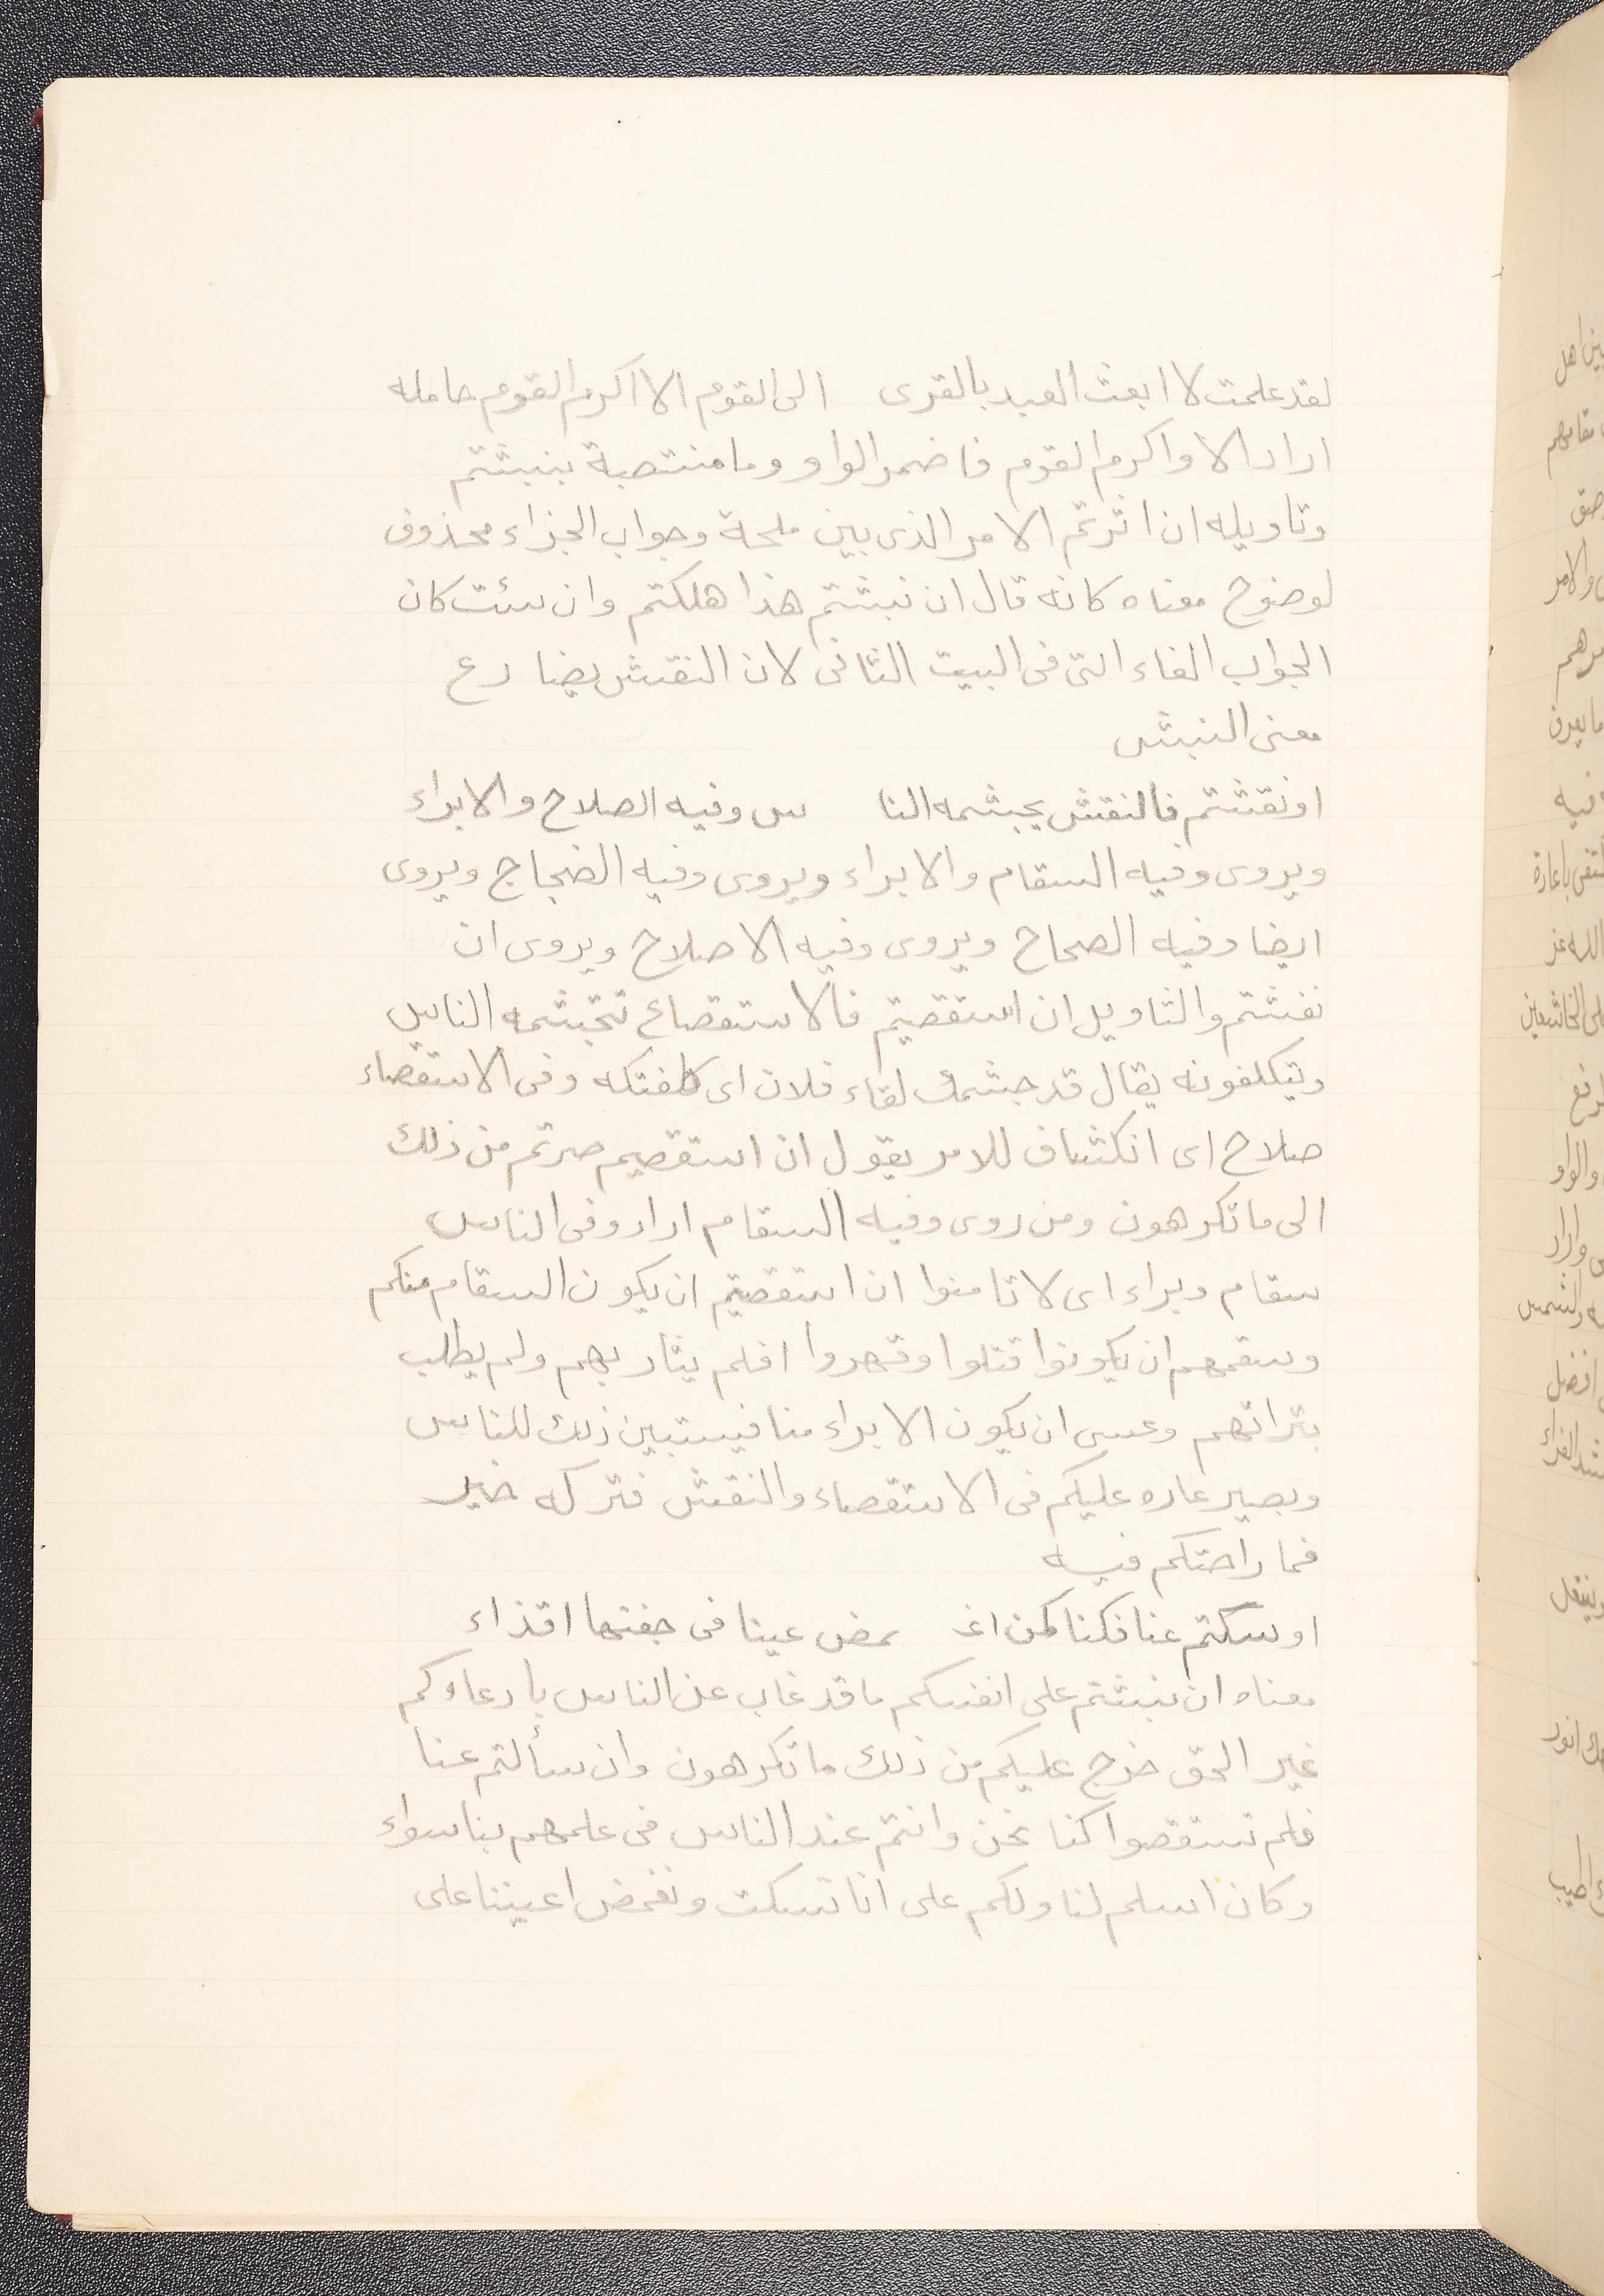 لقد علمت لا ابعث العبد بالقرى الى القوم الا اكرم القوم حامله
اراد الا واكرم القوم فاضمر الواو وما منتصبة بنبشتم
وتاويله ان اثرتم الامر الذى بين ملحة وجواب الجزاء محذوف
لوضوح معناه كانه قال ان نبشتم هذا هلكتم وان سئت كان
الجواب الفاء التى فى البيت الثانى لان النقش يضارع
معنى النبش
او نقشتم فالنقش يجشمه النا س وفيه الصلاح والابراء
ويروى وفيه السقام والابراء ويروى وفيه الضجاج ويروى
ايضا وفيه الصحاح ويروى وفيه الاصلاح ويروى ان
نفشتم والتاويل ان استقصيتم فالاستقصاء تجشمه الناس
ويتكلفونه يقال قد جشمك لقاء فلان اى كلفتكه وفى الاستقصاء
صلاح اى انكشاف للامر يقول ان استقصيم صرتم من ذلك
الى ما تكرهون ومن روى وفيه السقام اراد وفى الناس
سقام وبراء اى لا تامنوا ان استقصيتم ان يكون السقام منكم
وسقمهم ان يكونوا قتلوا وقهروا افلم يثار بهم ولم يطلب
بتراتهم وعسى ان يكون الابراء منا فيستبين ذلك للناس
ويصير عاره عليكم فى الاستقصاء والنقش فتركه خير
فما راحتكم فيه
او سكتم عنا فكنا كمن اغـ ـمض عينا فى جفنها اقذاء
معناه ان نبشتم على انفسكم ما قد غاب عن الناس بادعاوكم
غير الحق خرج عليكم من ذلك ما تكرهون وان سألتم عنا
فلم تستقصوا كنا نحن وانتم عند الناس فى علمهم بنا سواء
وكان اسلم لنا ولكم على انا نسكت ونغمض اعيننا على